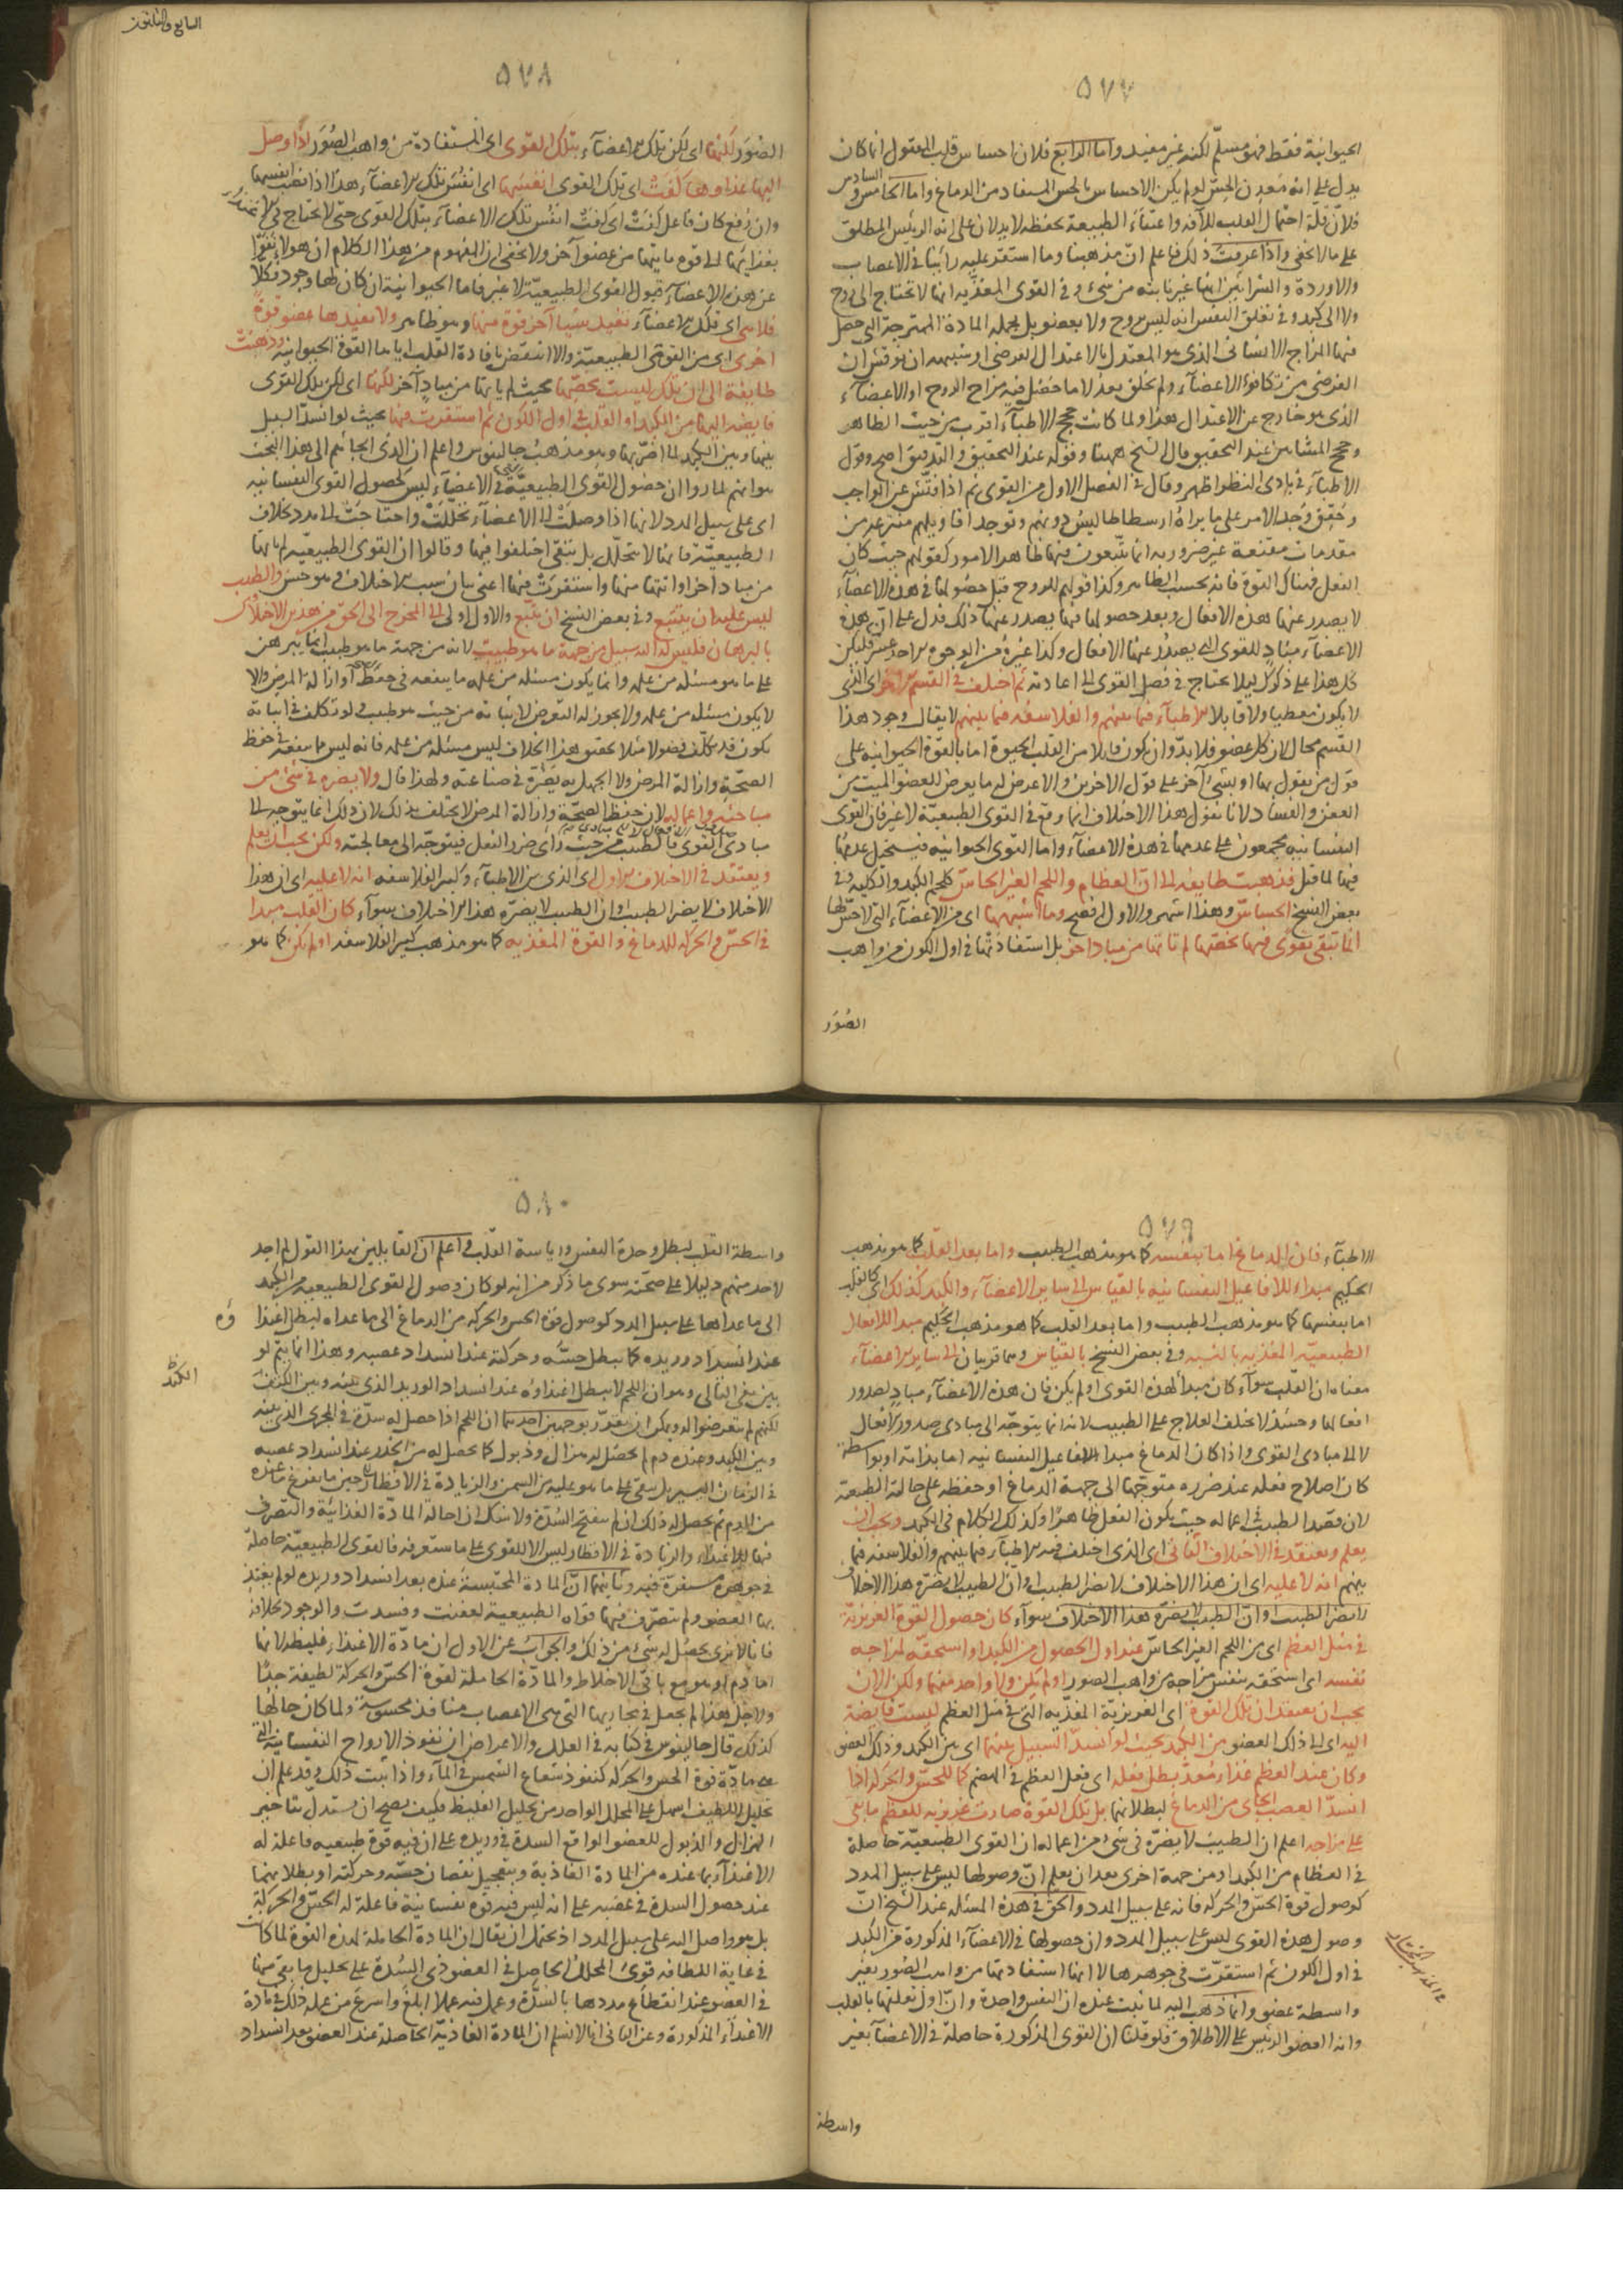 ٥٧٧
الحيوانية فقط فهو مسلّم لكنه غير مفيد واما الرابع فلان احساس قلب المقول انما كان
يدل على انه معدن الحسّ لو لم يكن الاحساس بالحس المستفاد من الدماغ واما الخامس والسادس
فلانّ قلة احتمال القلب للآفة واعتناء الطبيعة بحفظه لا يدلان على انه الرئيس المطلق
على ما لا يخفى واذا عرفت ذلك فاعلم انّ مذهبنا وما استقر عليه رأينا في الاعصاب
والاوردة والشرائين انها غير نابتة من شئ وفي القوى المغذيه انها لا تحتاج الى روح
ولا الى كبد وفي تعلق النفس انه ليس بروح ولا بعضو بل بجملة المادة الممتزجة التي حصل
فيها المزاج الانساني الذي هو المعتدل بالاعتدال الفرضى
الفرضى من تكافؤ الاعضآء ولم يخلق بعد لا ما حصل فيه مزاح الروح او الاعضآء
الذي هو خارج عن الاعتدال هذا ولما كانت حجج الاطبآء اقرب من حيث الظاهر
وحجج المشائين عند التحقيق قال الشيخ ههنا وقوله عند التحقيق والتدقيق اصح وقول
الاطبآء في بادى النظر اظهر وقال في الفصل الاول من القوى ثم اذا فتش عن الواجب
وحقق وجد الامر على ما يراه ارسطاطاليس دونهم وتوجد اقاويلهم منتزعة من
مقدمات مقنعة غير ضرورية انما يتبعون فيها ظاهر الامور كقولهم حيث كان
الفعل فهناك القوة فانه بحسب الظاهر وكذا قولهم للروح قبل حصولها في هذه الاعضآء
لا يصدر عنها هذه الافعال وبعد حصولها فيها يصدر عنها ذلك فدل على ان هذه
الاعضآء مبادٍ للقوى التي يصدر عنها الافعال وكذا غيره من الوجوه الاحد عشر فليكن
كل هذا على ذكرك ليلا يحتاج في فصل القوى الى اعادته ثم اختلف في القسم الآخر اى الذى
لا يكون معطيا ولا قابلا الاطبآء فيما بينهم والفلاسفه فيما بينهم لا يقال وجود هذا
القسم محال لان كل عضو فلا بدّ وان يكون قابلا من القلب الحيوة اما بالقوة الحيوانيه على
قول من يقول بها او بشئ آخر على قول الاخرين والا عرض له ما يعرض للعضو الميت من
العفن والفساد لانا نقول هذا الاختلاف انما وقع في القوى الطبيعيّة لا غير فان القوى
النفسانيه مجمعون على عدمها في هذه الاعضآء واما القوى الحيوانيه فيستحيل عدمها
فيها لما قيل فذهبت طايفه الى انّ العظام واللحم الغير الحاسّ كلحم الكبد والكليه وفي
بعض النسخ الحساسّ وهذا اشهر والاول افصح وما اشبههما اى من الاعضآء التي لا حسّ لها
انما تبقى بقوى فيها تخصّها لم تاتها من مباد اخر بل استفادتها في اول الكون من واهب
الصُوَر
السابع والثلثون
٥٧٨
الصُوَر لكنها اى لكن تلك الاعضآء بتلك القوى اى المستفادة من واهب الصُوَر اذا وصل
اليها غذاوها كفت اى تلك القوى انفسها اى انفس تلك الاعضآء هذا اذا نصب انفسها
وان رُفع كان فاعل كفت اى كفت انفس تلك الاعضآء بتلك القوى حتى لا تحتاج في
بغذائها الى قوه ما يتها من عضو آخر ولا يخفى ان المفهوم من هذا الكلام ان هولاء نفوا
عن هذه الاعضآء قبول القوى الطبيعيّة لا غير فاما الحيوانية ان كان لها وجود فكلا
فلا هى اى تلك الاعضآء تفيد شيا آخر قوة فيها وهو ظاهر ولا تفيدها عضو قوة
اخرى اى من القوى الطبيعيّة والا انتقض بافادة القلب اياها القوة الحيوانيه وذهبت
طايفة الى ان تلك ليست تخصّها بحيث لم ياتها من مبادٍ آخر لكنها اى لكن تلك القوى
فايضه اليها من الكبد او القلب في اول الكون ثم استقرت فيها بحيث لو انسدّ السبيل
بينها وبين الكبد لما اضرّ بها وهو مذهب جالينوس واعلم ان الذى الجأهم الى هذا البحث
هو انهم لما رواان حصول القوى الطبيعيّة في الاعضآء ليس كحصول القوى النفسانيه
اى على سبيل المدد لانها اذا وصلت الى الاعضآء تحللت واحتاجت الى مدد بخلاف
الطبيعيّة فانها لا تتحلل بل تبقى اختلفوا فيها وقالوا ان القوى الطبيعيه لم ياتها
من مباد اخر او اتتها منها واستقرت فيها اعنى بيان سبب الاختلاف وهو حسن والطبيب
ليس عليه ان يتتبع وفي بعض النسخ ان يتبع والاول اولى الى المخرج الى الحق من هذين الاختلاف
بالبرهان فليس له اليه سبيل من جهة ما هو طبيب لانه من جهة ما هو طبيب انما يبرهن
على ما هو مسئله من علمه وانما يكون مسئله من علمه ما ينفعه في حفظ او ازالة المرض والا
لا يكون مسئله من علمه ولا يجوز له التعرض لاثباته من حيث هو طبيب ولو تكلف في اثباته
يكون قد تكلف فضولا مثلا تحقيق هذا الخلاف ليس مسئله من علمه فانه ليس مما ينفعه في حفظ
الصحّة وازالة المرض ولا الجهل به يضره في صناعته ولهذا قال ولا يضره في شئ من
مباحثه واعماله لان حفظ الصحّة وازالة المرض لا يختلف بذلك لان ذلك انما يتوجه الى
مبادى القوى فالطبيب من حيث راى ضرر الفعل فيتوجّه الى معالجته ولكن يجب ان يعلم
ويعتقد في الاختلاف الاول اى الذى بين الاطبآء وكبير الفلاسفه انه لا عليه اى ان هذا
الاختلاف لا يضر الطبيب وان الطبيب لا يضرّه هذا الاختلاف سوآء كان القلب مبدا
في الحسّ والحركه للدماغ والقوة المغذيه كما هو مذهب كبير الفلاسفه او لم يكن كما هو
٥٧٩
الاطبآء فان الدماغ اما بنفسه كما هو مذهب الطبيب واما بعد القلب كما هو مذهب
الحكيم مبداء للافاعيل النفسانيه بالقياس الى ساير الاعضآء والكبد كذلك اى كالقلب
اما بنفسها كما هو مذهب الطبيب واما بعد القلب كما هو مذهب الحكيم مبدا للافعال
الطبيعيّة المغذيه بالنسبه وفي بعض النسخ بالقياس وهما قريبان الى ساير الاعضآء
معناه ان القلب سوآء كان مبدأ لهذه القوى او لم يكن فان هذه الاعضآء مبادٍ لصدور
افعالها وحينئذ لا يختلف العلاج على الطبيب لانه انما يتوجّه الى مبادى صدور الافعال
لا الى مبادى القوى واذا كان الدماغ مبدا الافاعيل النفسانيه اما بذاته او بواسطة
كان اصلاح فعله عند ضرره متوجّها الى جهة الدماغ او حفظه على حالته الطبيعيّة
لان قصد الطبيب في اعماله حيث يكون الفعل ظاهرا وكذلك الكلام في الكبد ويجب ان
يعلم ويعتقد في الاختلاف الثاني اى الذى اختلف فيه الاطبآء فيما بينهم والفلاسفه فيما
بينهم انه لا عليه اى ان هذا الاختلاف لا يضر الطبيب وانّ الطبيب لا يضره هذا الاختلاف
لا يضر الطبيب وانّ الطبيب لا يضرّه هذا الاختلاف سوآء كان حصول القوة الغريزيّة
في مثل العظم اى من اللحم الغير الحاسّ عند اول الحصول من الكبد او استحقه لمزاجه
نفسه اى استحقه بنفس مزاجه من واهب الصور او لم يكن ولا واحد منهما ولكن الان
يجب ان يعتقد ان تلك القوة اى الغريزيّة المغذّيه التي في مثل العظم ليست فايضة
اليه اى الى ذلك العضو من الكبد بحيث لو انسدّ السبيل بينهما اى بين الكبد وذلك العضو
وكان عند العظم غذاء مُعَدّ بطل فعله اى فعل العظم في الهضم كما للحسّ والحركه اذا
انسدّ العصب الجائ من الدماغ لبطلانها بل تلك القوة صارت غريزيه للعظم ما بقى
على مزاجه اعلم ان الطبيب لا يضرّه في شئ من اعماله ان القوى الطبيعيّة حاصلة
في العظام من الكبد او من جهة اخرى بعد ان يعلم انّ وصولها ليس على سبيل المدد
كوصول قوة الحسّ والحركه فانه على سبيل المدد والحق في هذه المسئله عند الشيخ انّ
وصول هذه القوى ليس على سبيل المدد وان حصولها في الاعضآء المذكورة من الكبد
في اول الكون ثم استقرّت في جوهرها لا انها استفادتها من واهب الصُوَر بغير
واسطة عضو وانما ذهب اليه لما ثبت عنده ان النفس واحدة وان اول تعلقها بالقلب
وانه العضو الرئيس على الاطلاق فلو قلنا ان القوى المذكورة حاصلة في الاعضآء بغير
واسطة
٥٨٠
واسطة القلب لبطل وحدة النفس ورياسة القلب واعلم ان القايلين بهذا القول لم اجد
لاحد منهم دليلا على صحّته سوى ما ذكر من انه لو كان وصول القوى الطبيعيه من الكبد
الى ما عداها على سبيل المدد كوصول قوة الحس والحركه من الدماغ الى ما عداه لبطل اغتذا
ؤه
عند انسداد وريده كما يبطل حسّه وحركته عند انسداد عصبه وهذا انما يتم لو
بيّن نفى التالى وهو ان اللحم لا يبطل اغتذاؤه عند انسداد الوريد الذى بينه وبين الكبد
الكبد
لكنهم لم يتعرضوا له ويمكن ان يقرّر بوجهين احدهما ان اللحم اذا حصل له سدّة في المجرى الذى بينه
وبين الكبد وعنده دم لم يحصل له هزال وذبول كما يحصل له من الخدر عند انسداد عصبه
في الزمان اليسير بل يبقى على ما هو عليه من السمن والزيادة في الاقطار الى حين ما يفرغ ما عنده
من الدم ثم يحصل له ذلك ان لم ينفتح السُدّة ولا شك ان احالة المادّة الغذائيّة والتصرف
فيها للاغتذاء والزيادة في الاقطار ليس الا للقوى على ما ستعرفه فالقوى الطبيعيّة حاصلة
في جوهره مستقرة فيه وثانيهما انّ المادة المحتبسة عنده بعد انسداد وريده لو لم يغتذ
بها العضو ولم يتصرّف فيها قواه الطبيعية لعفنت وفسدت والوجود بخلافه
فانا لا نرى يحصل له شئ من ذلك والجواب عن الاول ان مادّة الاغتذاء غليظه لانها
اما دم او هو مع باقى الاخلاط والمادّة الحاملة لقوة الحسّ والحركة لطيفة جدّا
ولاجل هذا لم يجعل في مجاريها التى هى الاعصاب منافذ محسوسة ولما كان حالها
كذلك قال جالينوس في كتابه في العلل والاعراض ان نفوذ الارواح النفسانية التى
هى مادّة قوة الحس والحركه كنفوذ شعاع الشمس في المآء واذا ثبت ذلك وقد علم ان
تحليل اللطيف اسهل على المحلل الواحد من تحليل الغليظ فكيف يصح ان يستدل بتاخير
الهزال والذبول للعضو الواقع السدة في وريده على ان فيه قوة طبيعيه فاعلة له
الاغتذآء بما عنده من المادة الغاذية وبتعجيل نقصان حسّه وحركته او بطلانهما
عند حصول السدة في عصبه على انه ليس فيه قوه نفسانية فاعلة له الحسّ والحركة
بل هو واصل اليه على سبيل المدد اذ يحتمل ان يقال ان المادة الحاملة لهذه القوة لما كانت
في غاية اللطافه قوى المحلل الحاصل في العضو ذى السُدة على تحليل ما بقى منها
في العضو عند انقطاع مددها بالسدّة وعمل فيه عملا ابلغ واسرع من عمله ذلك في مادة
الاغتذاء المذكورة وعن الثانى انا لا نسلم ان المادة الغاذيّة الحاصلة عند العضو بعد انسداد